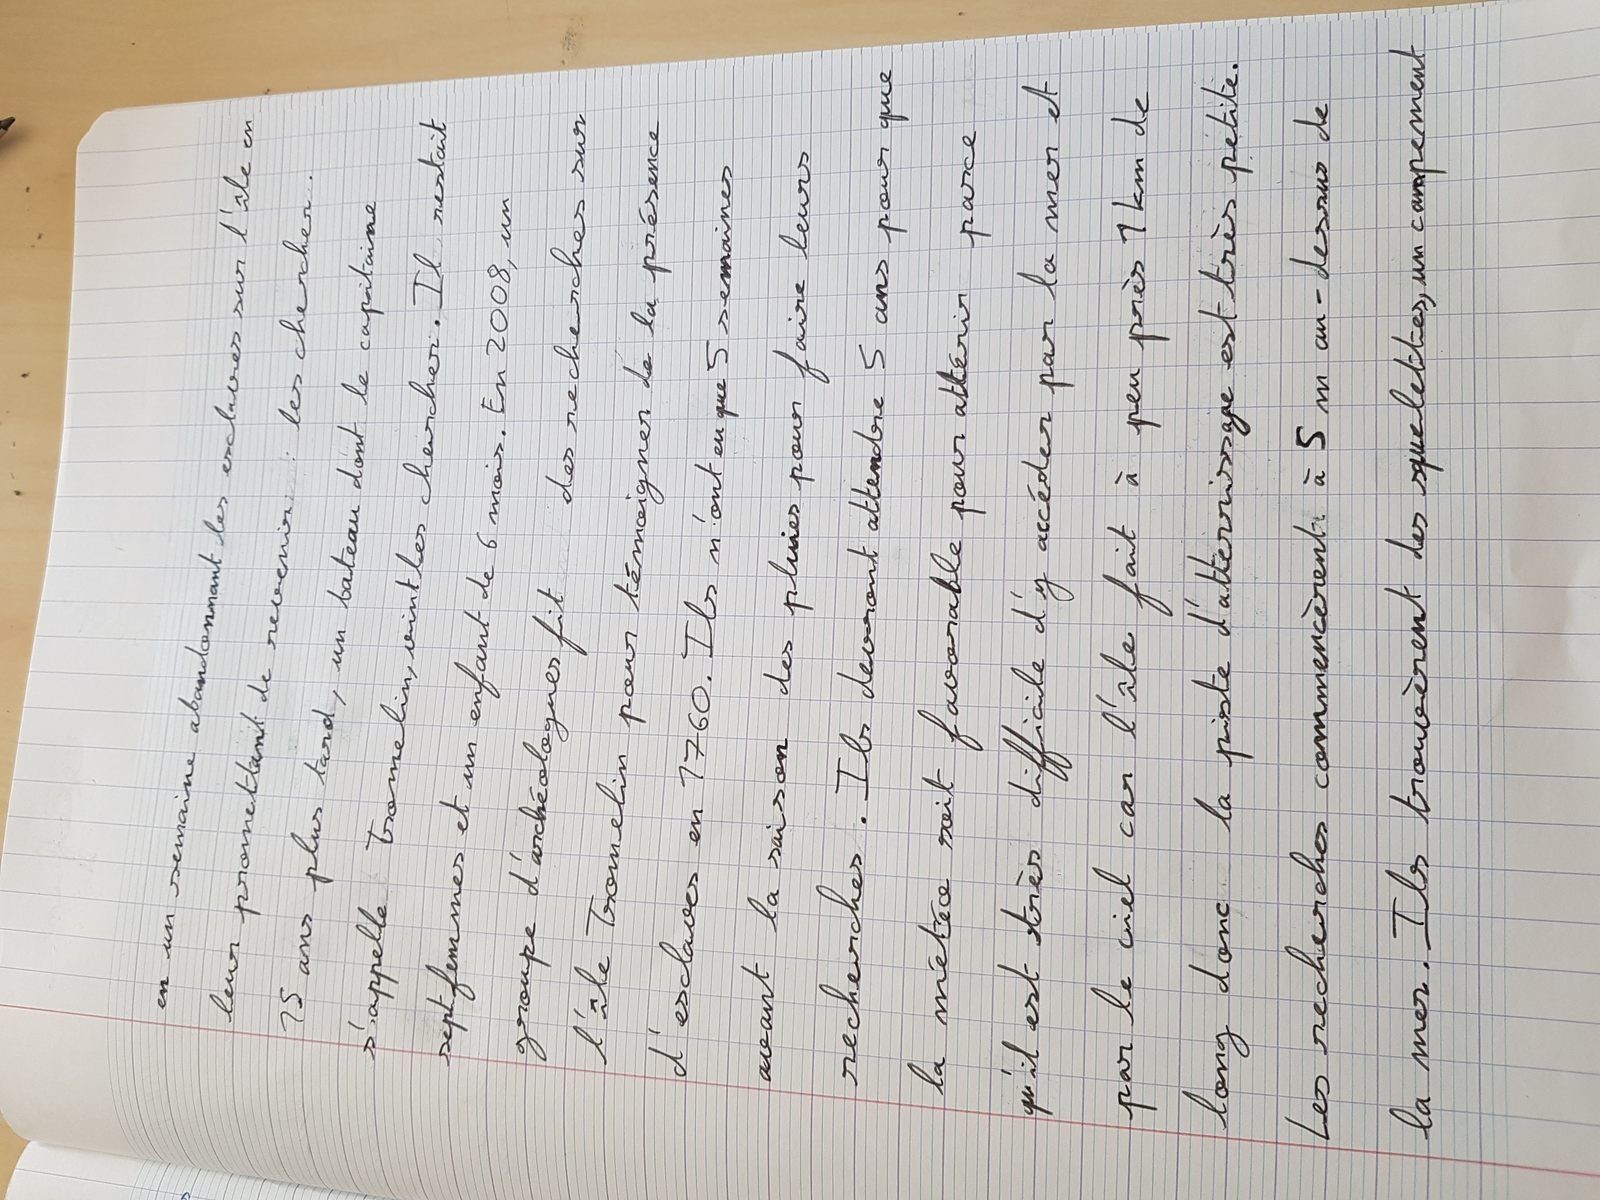 en un semaine abandonnant les esclaves sur l'île en
leur promettant de revenir les chercher.
15 ans plus tard, un bateau dont le capitaine
s'appelle Tromelin, vint les chercher. Il restait
sept femmes et un enfant de 6 mois. En 2008, un
groupe d'archéologues fit des recherches sur
l'île Tromelin pour témoigner de la présence
d'esclaves en 1760. Ils n'ont eu que 5 semaines
avant la saison des pluies pour faire leurs
recherches. Ils devront attendre 5 ans pour que
la météo soit favorable pour attérir parce
qu'il est très difficile d'y accéder par la mer et
par le ciel car l'île fait à peu près 1 km de
long donc la piste d'atterrissage est très petite.
Les recherches commencèrent à 5 m au-dessus de
la mer. Ils trouvèrent des squelettes, un campement